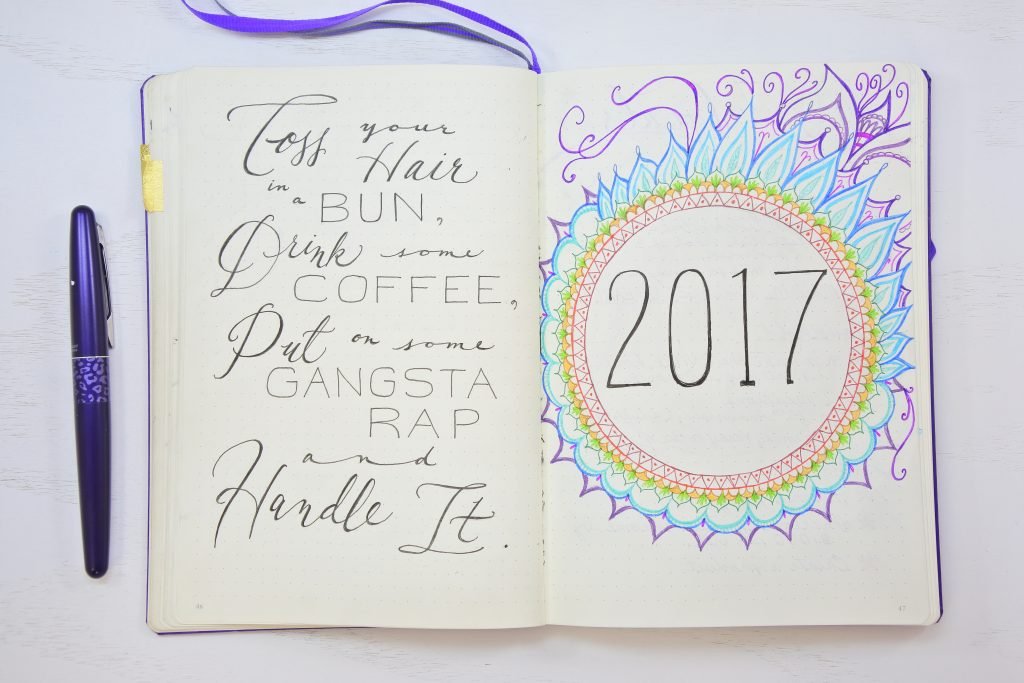 Toss your
Hair
in
a BUN,
Drink some
COFFEE,
Put on some
GANGSTA
RAP
and
Handle It.
46
2017
47